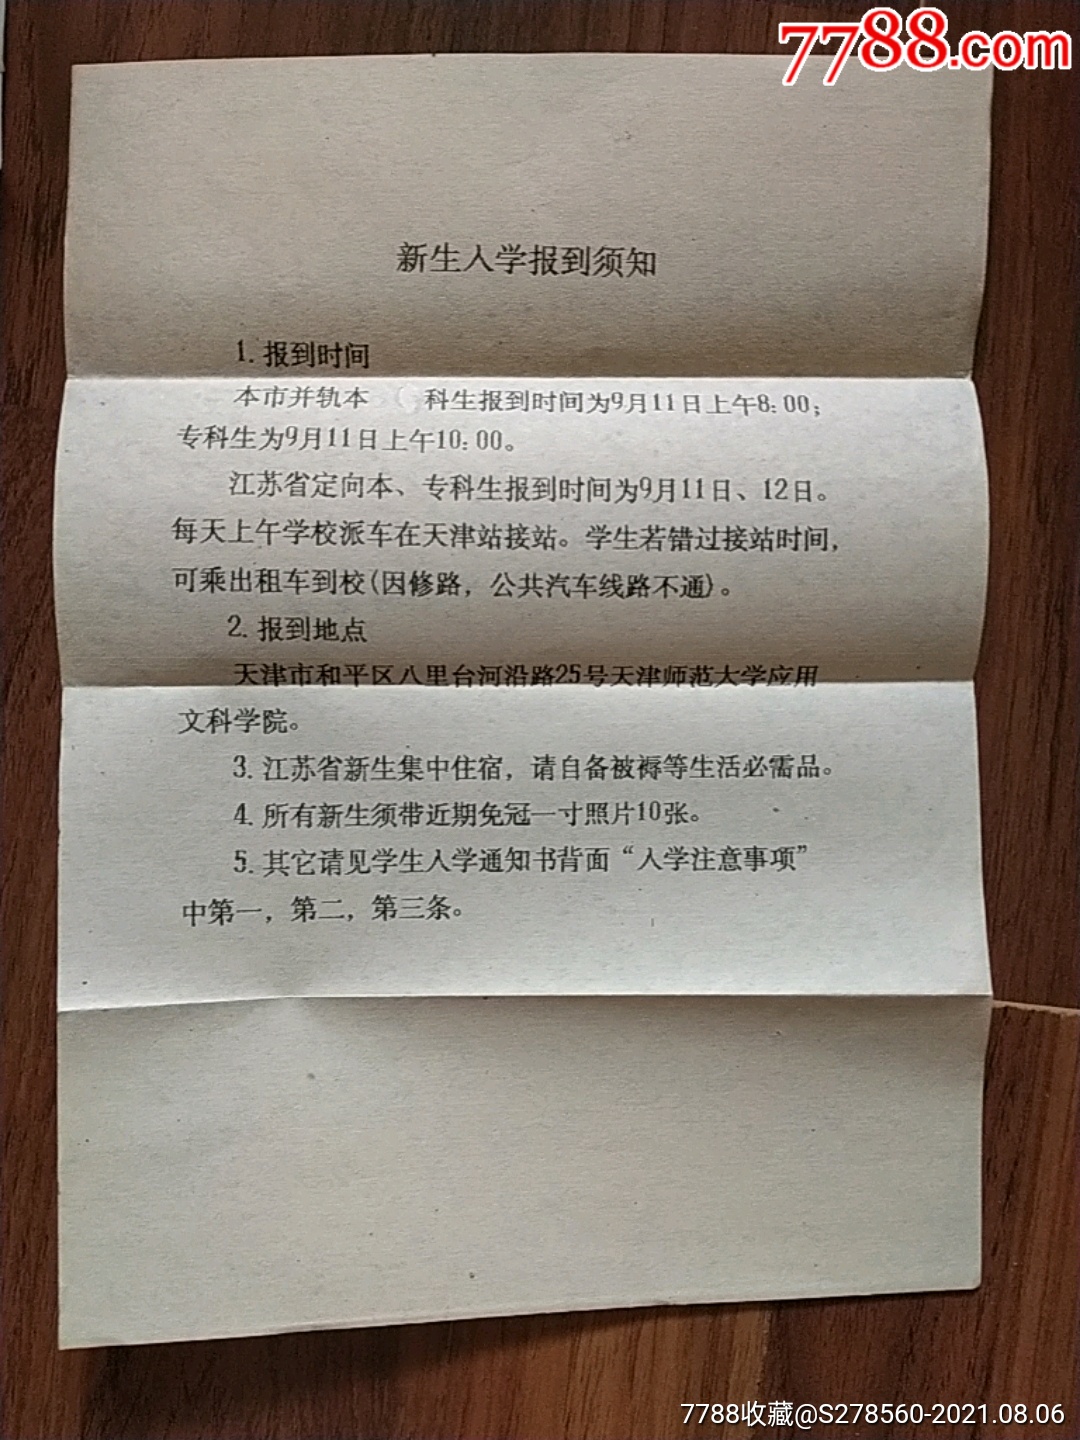 7788.com
新生入学报到须知
1. 报到时间
本市并轨本 科生报到时间为9月11日上午8:00;
专科生为9月11日上午10:00。
江苏省定向本、专科生报到时间为9月11日、12日。
每天上午学校派车在天津站接站。学生若错过接站时间,
可乘出租车到校(因修路, 公共汽车线路不通)。
2. 报到地点
天津市和平区八里台河沿路25号天津师范大学应用
文科学院。
3. 江苏省新生集中住宿, 请自备被褥等生活必需品。
4. 所有新生须带近期免冠一寸照片10张。
5. 其它请见学生入学通知书背面“入学注意事项”
中第一, 第二, 第三条。
7788收藏@S278560-2021.08.06